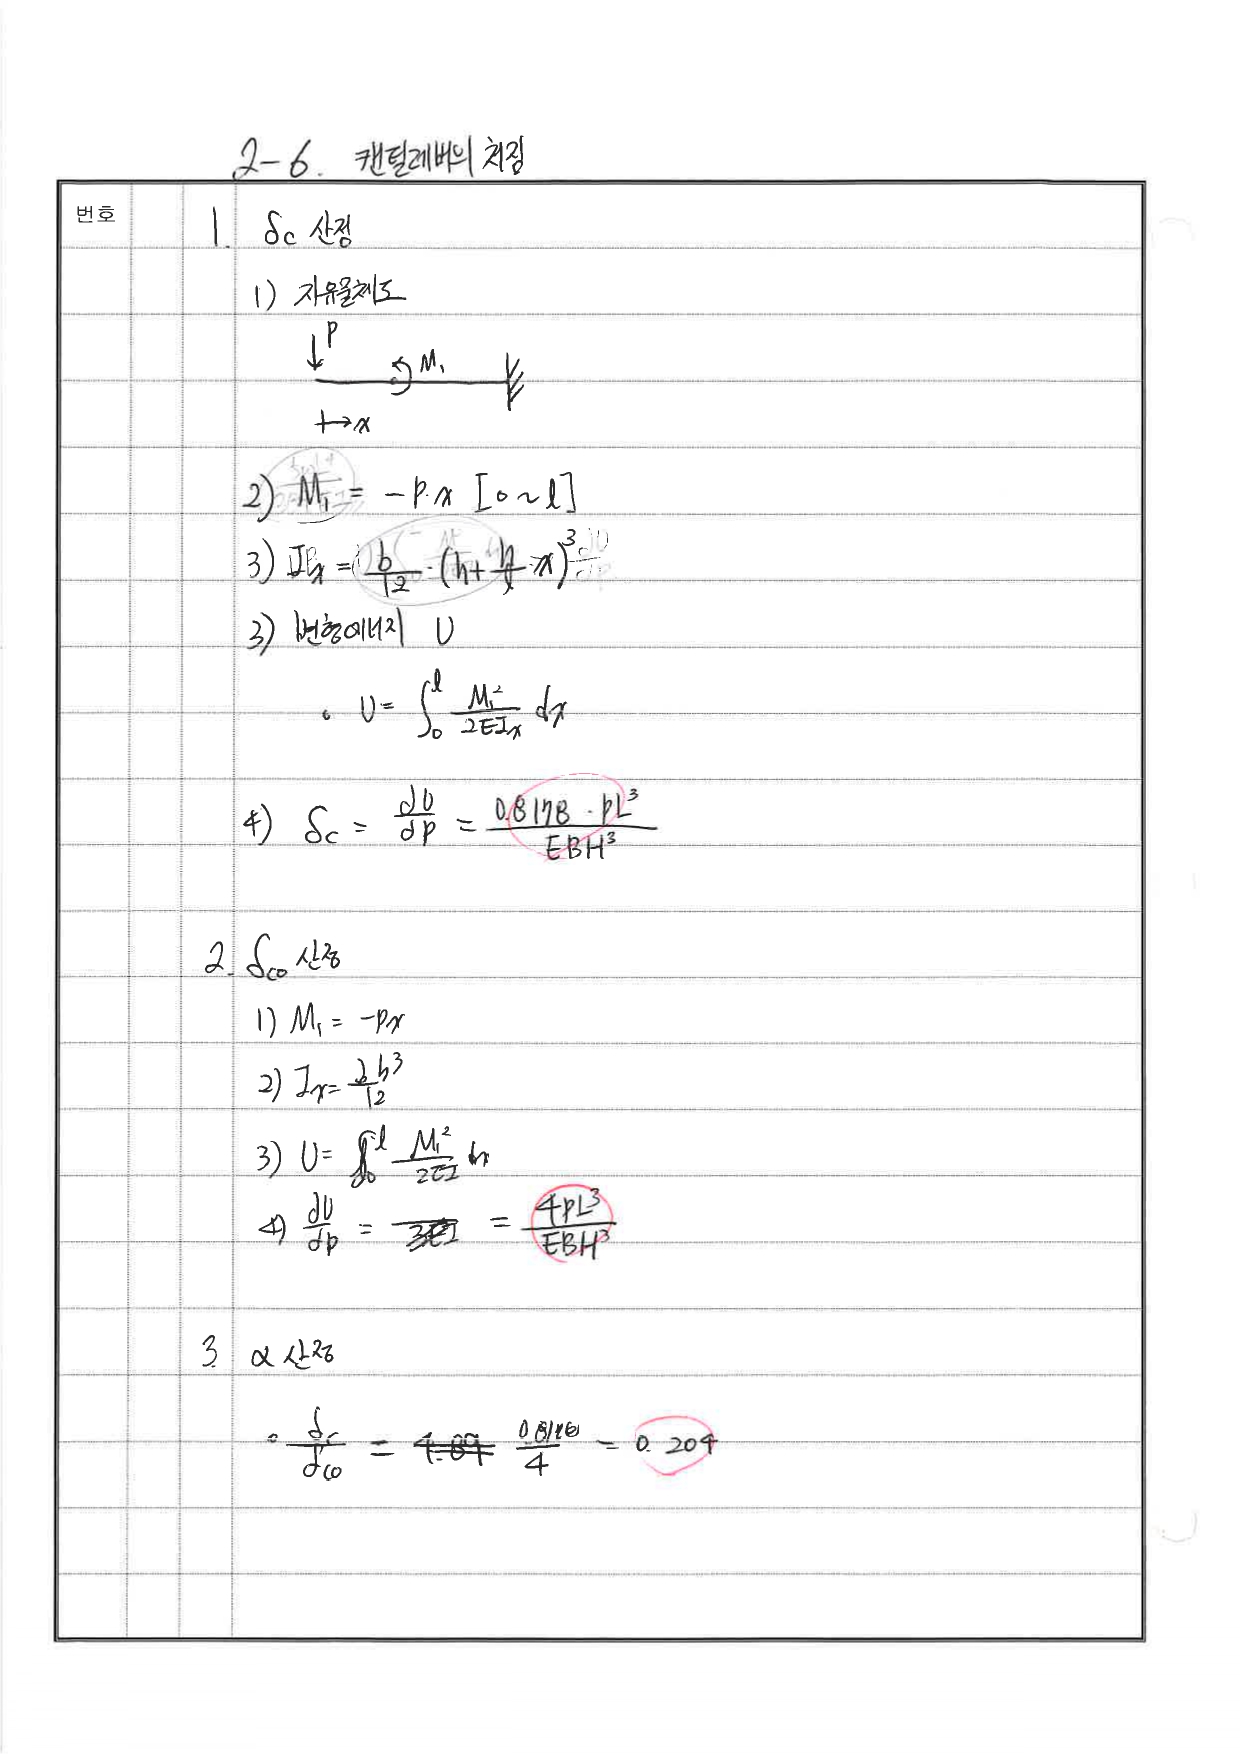 2-6. 캔틸레버의 처짐
번호
1. δc 산정
1) 자유물체도
P
M₁
x
2) M₁ = -P·x [0~l]
3) Ix = b/12 · (h + h/l · x)³
3) 변형에너지 U
∘ U = ∫₀ˡ M₁²/2EIx dx
4) δc = dU/dP = 0.8178·PL³/EBH³
2. δco 산정
1) M₁ = -Px
2) Ix = bh³/12
3) U = ∫₀ˡ M₁²/2EI dx
4) dU/dP = = 4PL³/EBH³
3. α 산정
∘ δc/δco = 0.8178/4 = 0.204